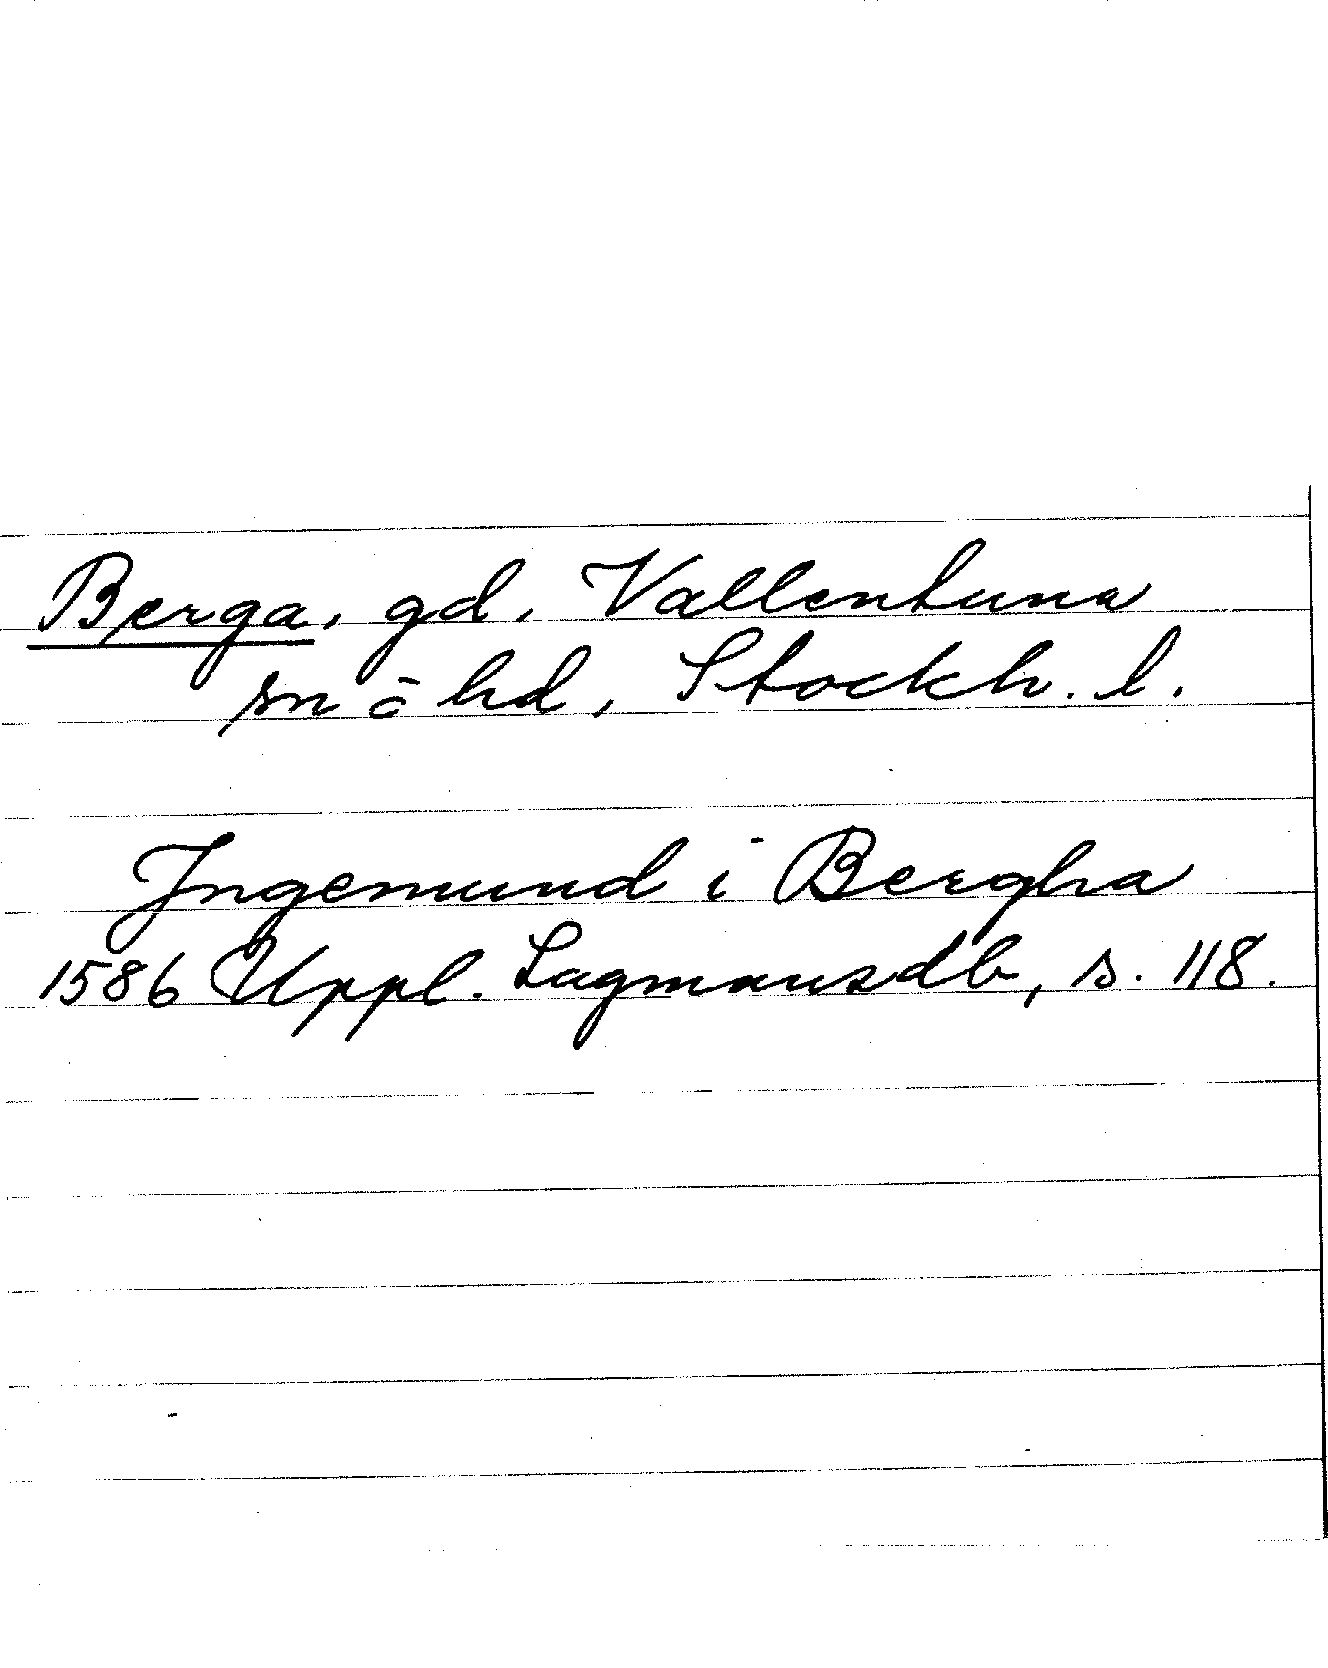 Berga, gd, Vallentuna
sn o hd, Stockh. l.
Ingemund i Bergha
1586 Uppl. Lagmansdb, s. 118.